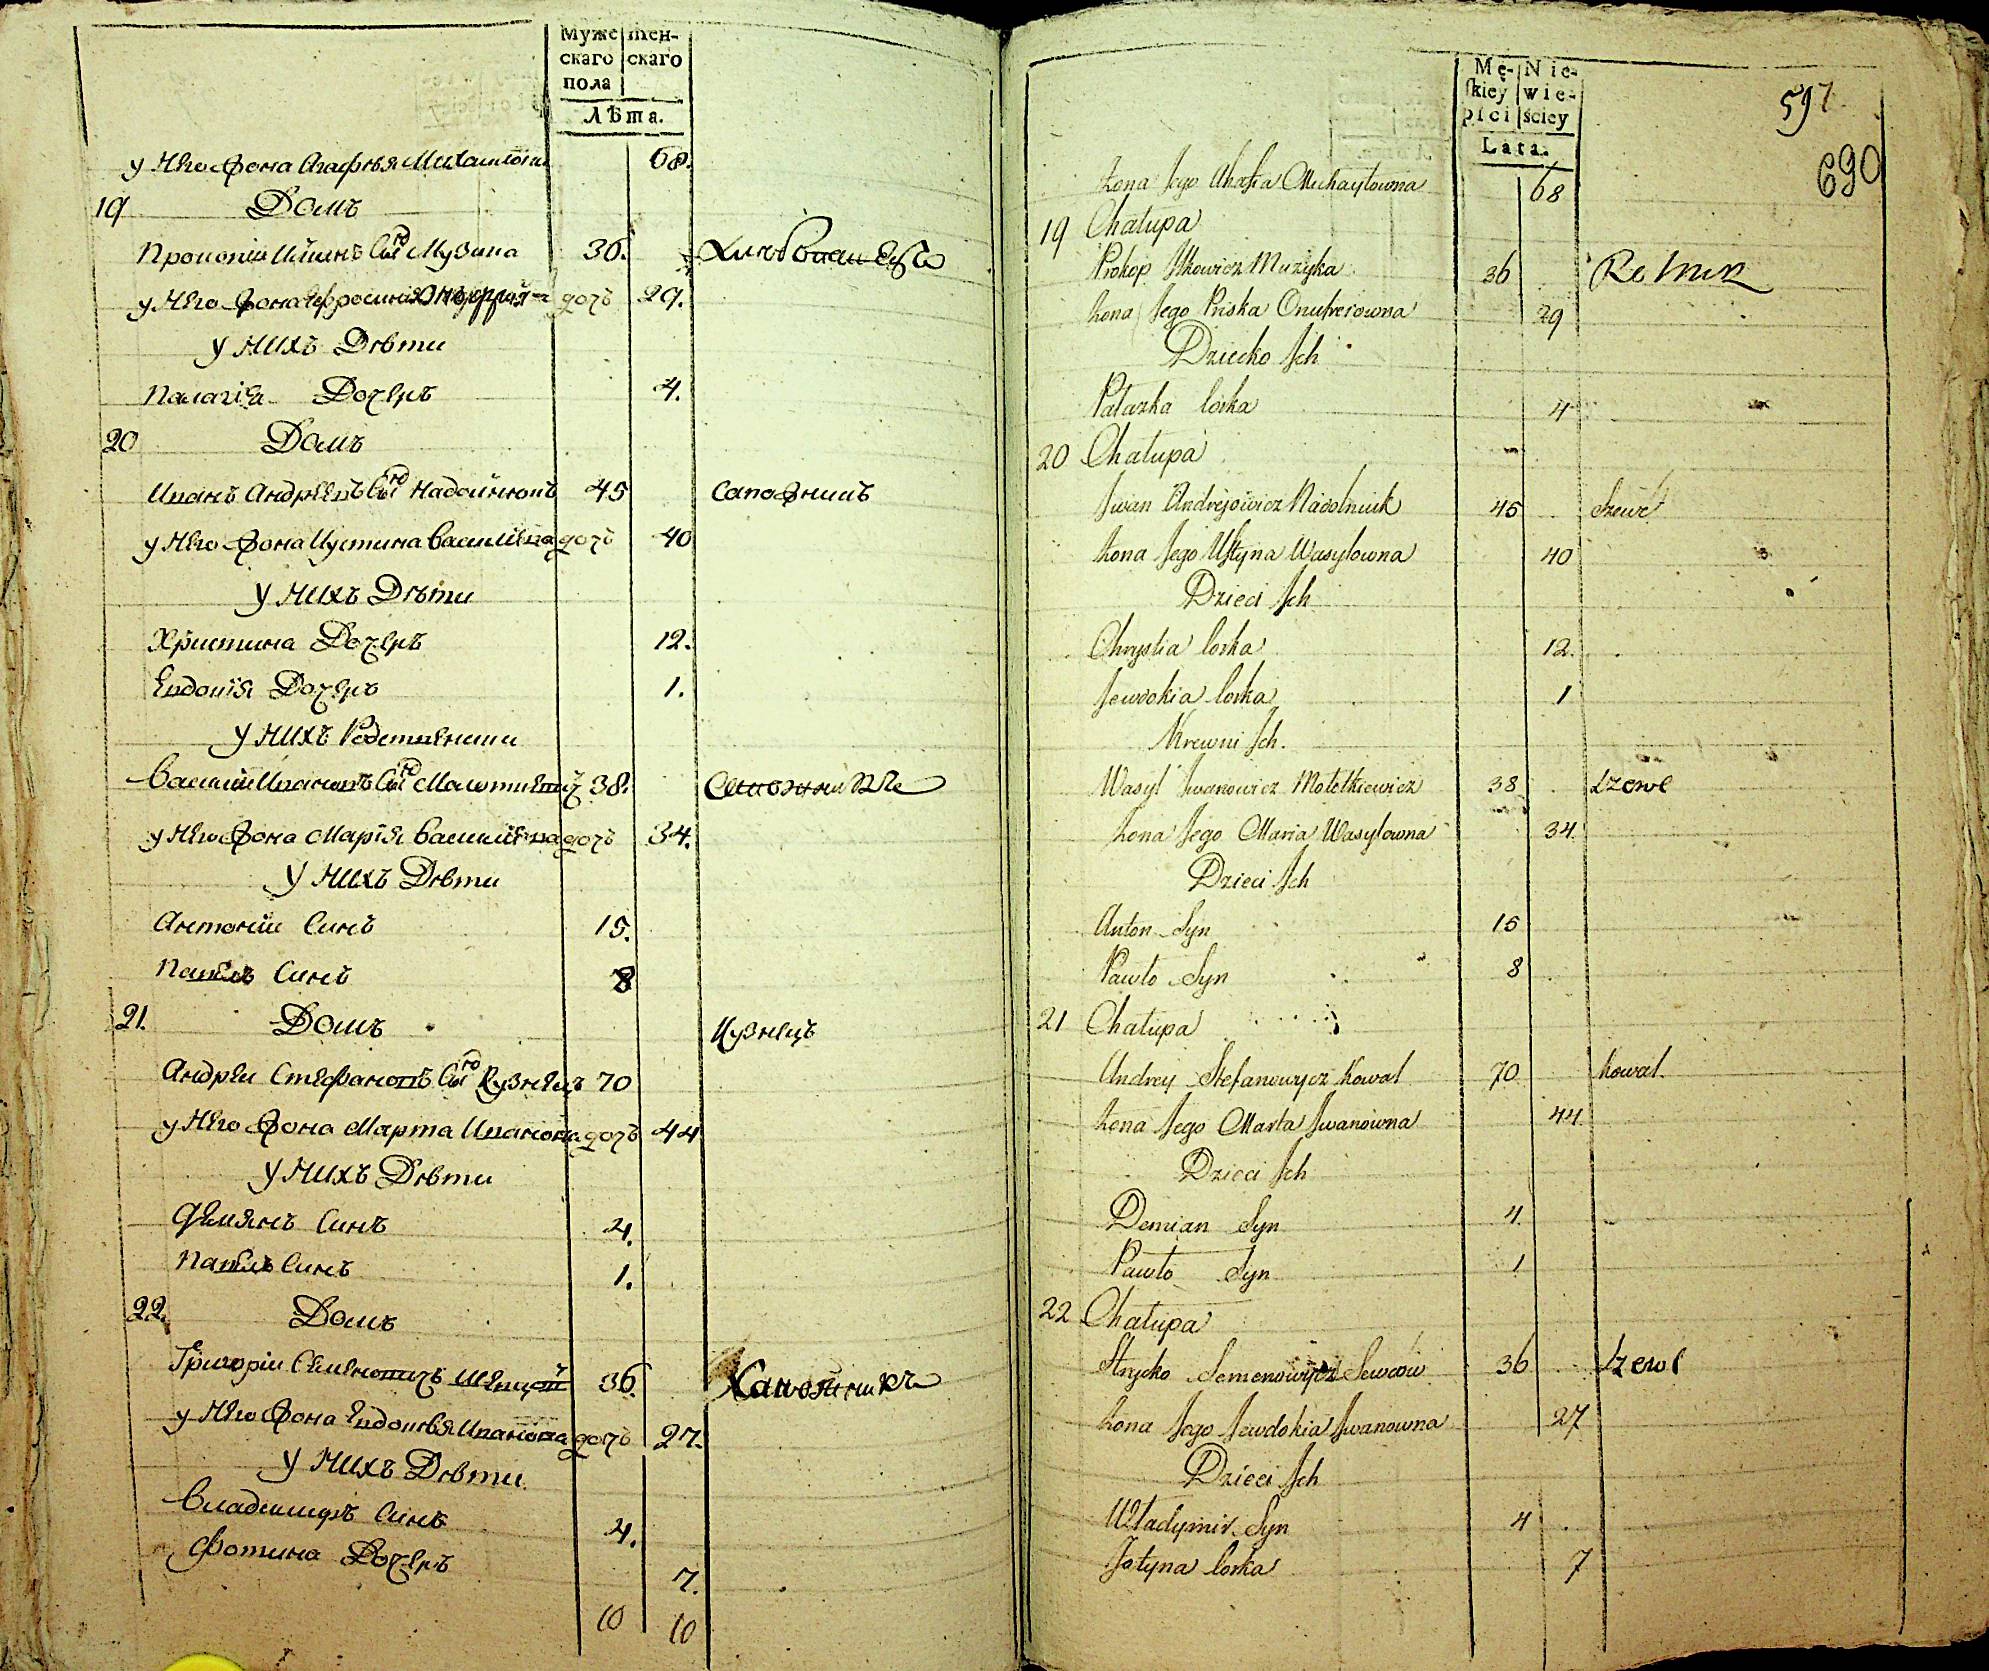 Муже скаго пола
жен- скаго
Лѣта.
у Него жена Агафья Михаилова 68.
19 Домъ
Прокопій Ицинъ Сынъ Музика 36.
у Него жена Ефросинія дочь 29.
у Нихъ Дѣти
Палагіѧ Дочерь 4.
20 Домъ
Иванъ Андреевъ Сынъ Надолнюкъ 45 Сапожникъ
у Него жена Иустина Василіева дочь 40
у Нихъ Дѣти
Христина Дочерь 12.
Евдокія Дочерь 1.
у Нихъ Родственики
Василій Ивановъ Сынъ 38.
у Него жена Марія Василіева дочь 34.
У Нихъ Дѣти
Антоній Синъ 15.
Павелъ Синъ 8
21. Домъ
Кузнецъ
Андреи Стефановъ Сынъ Кузнецъ 70
у Него жена Марта Иванова дочь 44
У Нихъ Дѣти
Демянъ Синъ 4.
Павелъ Синъ 1.
22. Домъ
Григоріи Семеновичъ 36.
у Него жена Евдокія Иванова дочь 27.
У Нихъ Дѣти
Владимиръ Синъ 4.
Фотина Дочерь 7.
10 10
Mę- skiey płci
Nie- wie- ściey
Lata.
597
690
Żona Jego Ahafia Michayłowna 68
19 Chałupa
Prokop Ickowicz Muzyka 36 Rolnik
Żona Jego Priska Onufreiowna 29
Dziecko Ich
Pałazka Corka 4
20 Chałupa
Iwan Andrejowicz Nadolniuk 45 Szewc
Żona Jego Ustyna Wasylowna 40
Dzieci Ich
Chrystia Corka 12.
Jewdokia Corka 1
Krewni Ich.
Wasyl Iwanowicz Mołotkiewicz 38 Szewc
Żona Jego Maria Wasylowna 34
Dzieci Ich
Anton Syn 15
Pawło Syn 8
21 Chałupa
Andrey Stefanowycz Kowal 70 Kowal.
Żona Jego Marta Iwanowna 44
Dzieci Ich
Demian Syn 4.
Pawło Syn 1
22 Chałupa
Hrycko Semenowycz Sewców 36 Szewc
Żona Jego Jewdokia Iwanowna 27
Dzieci Ich
Władymir Syn 4
Fotyna Corka 7